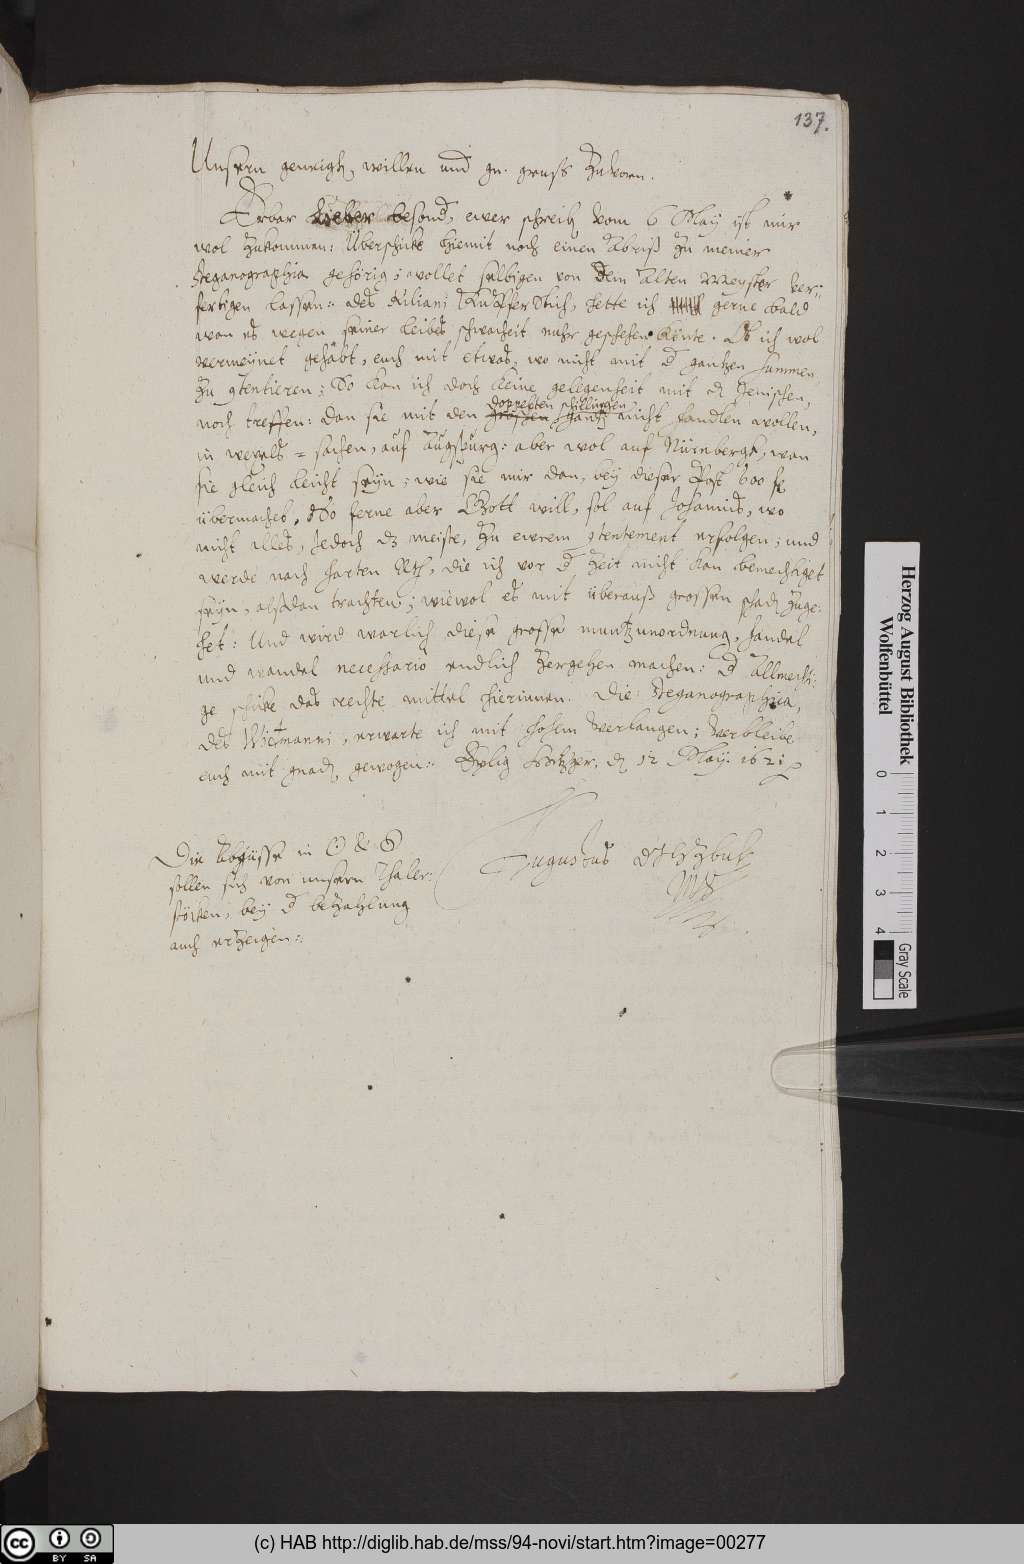 137.
Unsern geneigten willen und gn. grus zuvorn.
Erbar lieber besond, ewer schreib vom 6 May ist mir
wol zukommen: Uberschicke hiemit noch einen Abriß zu meiner
Steganographia gehörig; wollet selbigen von dem alten Meyster ver:
fertigen lassen: des Kiliani Kupferstich, hette ich gerne bald
wan es wegen seiner leibes schwacheit mehr geschehen könte. Ob ich wol
vermeinet gehabt, euch mit etwas, wo nicht mit d gantzen summen
zu contentieren; So kan ich doch keine gelegenheit mit d Jenischen,
doppelten schillingen
noch treffen: dan sie mit den groschen nicht handlen wollen,
in wexels = sachen, auf Augspurg: aber wol auf Nürnbergk, wan
sie gleich leicht seyn; wie sie mir dan, bey dieser Post 600 fl
übermachet. So ferne aber Gott will, sol auf Johannis, wo
nicht alles, jedoch dz meiste, zu ewrem contentement erfolgen; und
werde nach harten Rth, die ich vor d Zeit nicht kan bemechtiget
seyn, alßdan trachten; wiewol es mit überauß grossen schad zuge:
het: Und wird warlich diese grosse muntzunordnung, handel
und wandel necessario endlich zergehen machen: d Allmechti:
ge schicke das rechte mittel hierinnen. Die Steganographica,
des Wiermanni, erwarte ich mit hohem verlangen; Verbleibe
euch mit gnad gewogen: Eylig Hitzger, d 12 May. 1621
Augustus HZBuL
Die Abgüsse in
sollen sich von unsern Thaler:
stöcken, bey d bezahlung
auch erzeigen:
Herzog August Bibliothek
Wolfenbüttel
0 1 2 3 4
Gray Scale
cc BY SA
(c) HAB http://diglib.hab.de/mss/94-novi/start.htm?image=00277